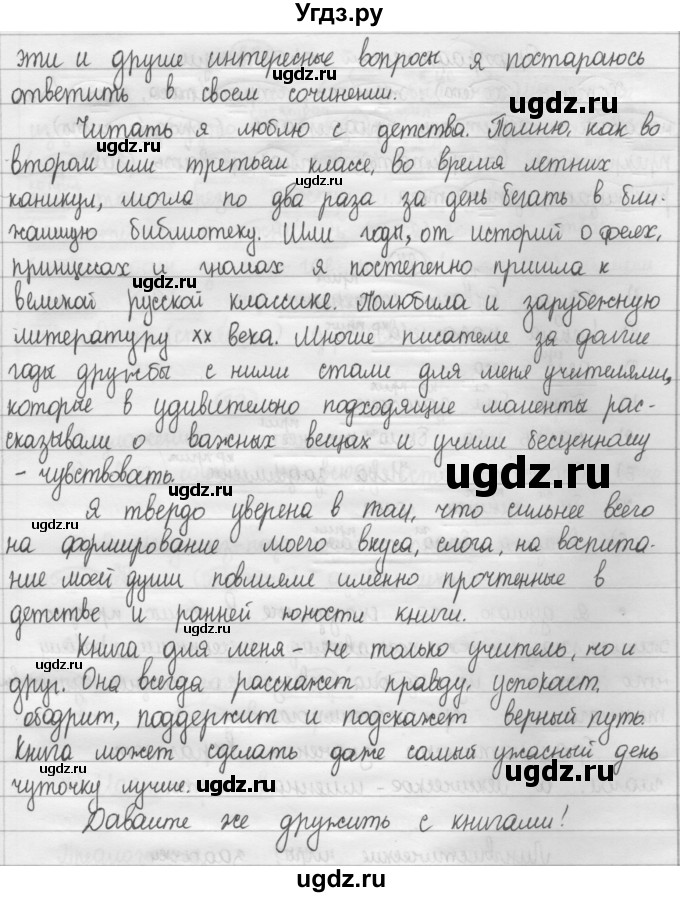 Угдз.ру
эти и другие интересные вопросы я постараюсь
ugdz.ru
ответить в своем сочинении.
ugdz.ru
ugdz.ru
Читать я люблю с детства. Помню, как во
втором или третьем классе, во время летних
ugdz.ru
каникул, могла по два раза за день бегать в бли-
жайшую библиотеку. Шли годы, от историй о феях,
ugdz.ru
принцессах и гномах я постепенно пришла к
великой русской классике. Полюбила и зарубежную
ugdz.ru
литературу XX века. Многие писатели за долгие
годы дружбы с ними стали для меня учителями,
ugdz.ru
которые в удивительно подходящие моменты рас-
сказывали о важных вещах и учили бесценному
- чувствовать.
ugdz.ru
ugdz.ru
Я твердо уверена в том, что сильнее всего
ugdz.ru
на формирование моего вкуса, слога, на воспита-
ние моей души повлияли именно прочтенные в
ugdz.ru
детстве и ранней юности книги.
ugdz.ru
Книга для меня - не только учитель, но и
ugdz.ru
друг. Она всегда расскажет правду, успокоит,
ободрит, поддержит и подскажет верный путь.
ugdz.ru
Книга может сделать даже самый ужасный день
ugdz.ru
ugdz.ru
чуточку лучше.
ugdz.ru
Давайте же дружить с книгами!
ugdz.ru
ugdz.ru